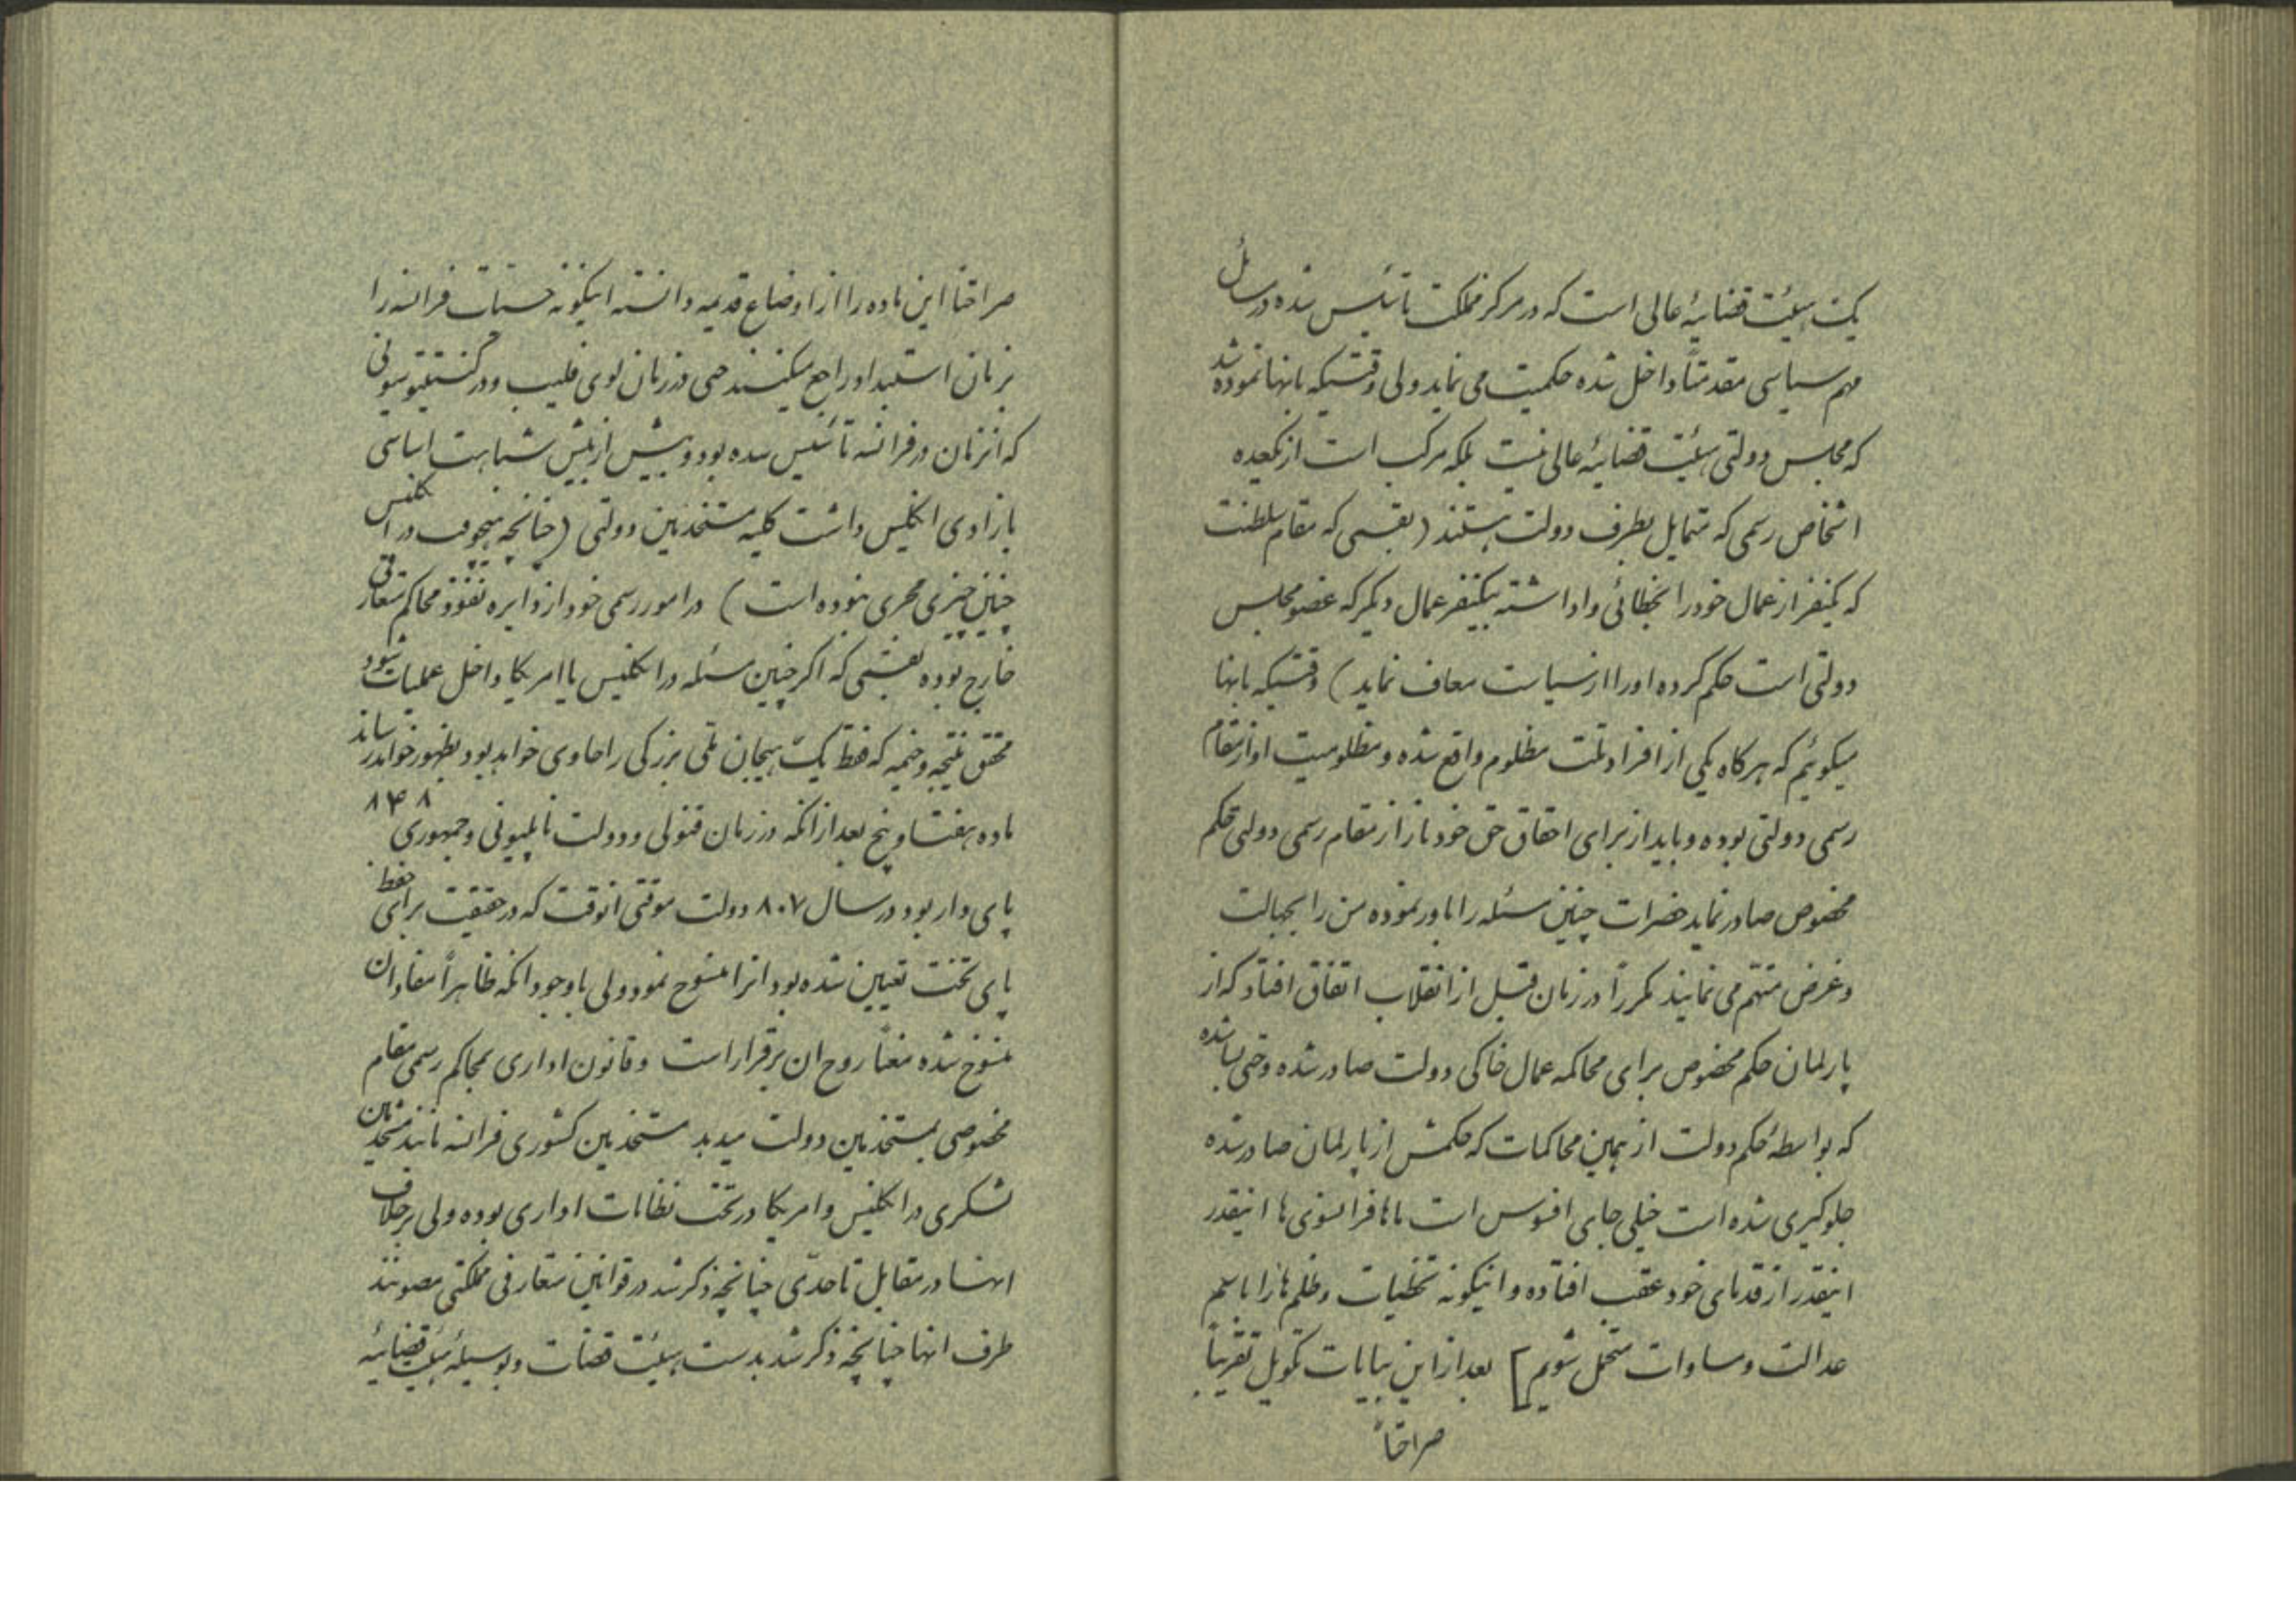 یک هیئت قضائیهٔ عالی است که در مرکز مملکت تاسیس شده در مسائل
مهم سیاسی مقدمتاً داخل شده حکمیت می نماید ولی وقتیکه بانها نموده شد
که مجلس دولتی هیئت قضائیهٔ عالی نیست بلکه مرکب است از یکعده
اشخاص رسمی که متمایل بطرف دولت هستند (بقسمی که مقام سلطنت
که یکنفر از عمال خود را بخطائی واداشته بیکنفر عمال دیگر که عضو مجلس
دولتی است حکم کرده او را از سیاست معاف نماید) وقتیکه بانها
میکوئیم که هرکاه یکی از افراد ملت مظلوم واقع شده و مظلومیت او از مقام
رسمی دولتی بوده و باید از برای احقاق حق خود باز از مقام رسمی دولتی حکم
مخصوص صادر نماید حضرات چنین مسئله را باور ننموده من را بجهالت
و غرض متهم می نمایند مکرراً در زمان قبل از انقلاب اتفاق افتاد که از
پارلمان حکم مخصوص برای محاکمه عمال خاکی دولت صادر شده و حتی بسا شده
که بواسطهٔ حکم دولت از همین محاکمات که حکمش از پارلمان صادر شده
جلوکیری شده است خیلی جای افسوس است ماها فرانسوی ها انیقدر
انیقدر از قدمای خود عقب افتاده و انیکونه تخطیات و ظلم ها را باسم
عدالت و مساوات متحمل شویم] بعد از این بیانات تکویل تقریباً
صراحتاً
صراحتاً این ماده را از اوضاع قدیمه دانسته اینکونه حسیات فرانسه را
بزمان استبداد راجع میکنند حتی در زمان لوی فلیپ و در کنستیتوسیونی
که انزمان در فرانسه تأسیس شده بود و بیش از پیش شباهت اساسی
بازادی انکلیس داشت کلیه مستخدمین دولتی (چنانچه هیچوقت در انکلیس
چنین چیزی مجری نبوده است) در امور رسمی خود از دایره نفوذ محاکم متعارفی
خارج بوده بقسمی که اکر چنین مسئله در انکلیس یا امریکا داخل عملیات شود
محققاً نتیجه وخیمه که فقط یک هیجان ملی بزرکی را حاوی خواهد بود بظهور خواهد رساند
ماده هفتاد و پنج بعد از انکه در زمان قنولی و دولت ناپلیونی و جمهوری ۸۴۸
پای دار بود در سال ۸۰۷ دولت موقتی انوقت که در حقیقت برای حفظ
پای تخت تعیین شده بود انرا منسوخ نمود ولی با وجود انکه ظاهراً مفاد ان
منسوخ شده معناً روح ان برقرار است و قانون اداری بمحاکم رسمی مقام
مخصوصی بمستخدمین دولت میدهد مستخدمین کشوری فرانسه مانند مستخدمین
لشکری در انکلیس و امریکا در تحت نظامات اداری بوده ولی برخلاف
انها در مقابل تا حدّی چنانچه ذکر شد در قوانین متعارفی مملکتی مصونند
طرف انها چنانچه ذکر شد بدست هیئت قضات و بوسیلهٔ هیئت قضائیه